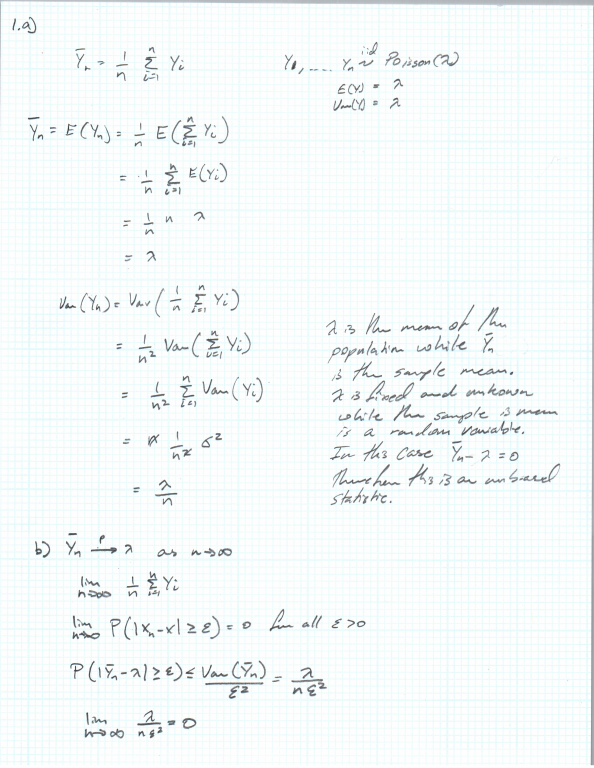 1.a)
Ȳₙ = 1/n Σᵢ₌₁ⁿ Yᵢ
Y₁, ..... Yₙ iid ~ Poisson(λ)
E(Y) = λ
Var(Y) = λ
Ȳₙ = E(Yₙ) = 1/n E(Σᵢ₌₁ⁿ Yᵢ)
= 1/n Σᵢ₌₁ⁿ E(Yᵢ)
= 1/n n λ
= λ
Var(Yₙ) = Var(1/n Σᵢ₌₁ⁿ Yᵢ)
= 1/n² Var(Σᵢ₌₁ⁿ Yᵢ)
= 1/n² Σᵢ₌₁ⁿ Var(Yᵢ)
= n 1/n² σ²
= λ/n
λ is the mean of the
population while Ȳₙ
is the sample mean.
λ is fixed and unknown
while the sample is mean
is a random variable.
In this case Ȳₙ - λ = 0
Therefore this is an unbiased
statistic.
b) Ȳₙ →ᵖ λ as n→∞
lim n→∞ 1/n Σᵢ₌₁ⁿ Yᵢ
lim n→∞ P(|Xₙ-x| ≥ ε) = 0 for all ε > 0
P(|Ȳₙ-λ| ≥ ε) ≤ Var(Ȳₙ)/ε² = λ/nε²
lim n→∞ λ/nε² = 0